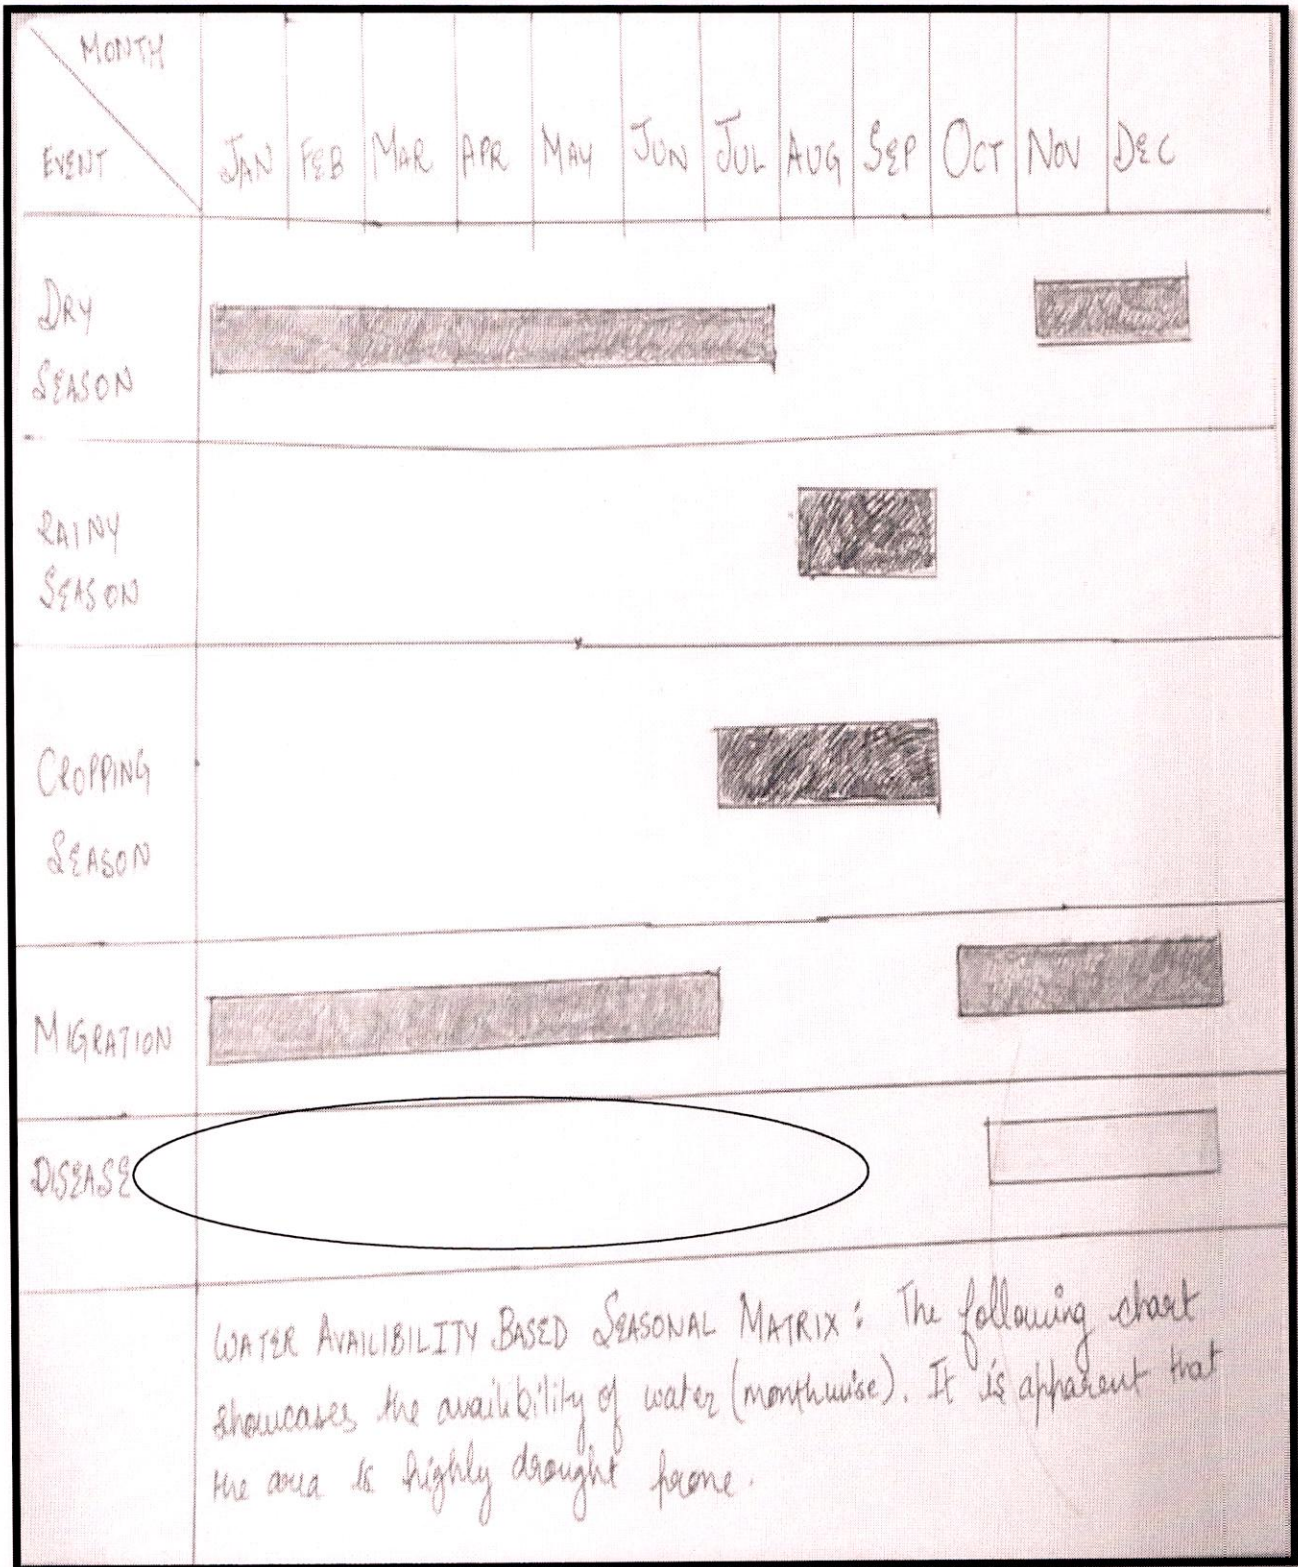 MONTH
EVENT
JAN FEB MAR APR MAY JUN JUL AUG SEP OCT NOV DEC
DRY
SEASON
RAINY
SEASON
CROPPING
SEASON
MIGRATION
DISEASE
WATER AVAILIBILITY BASED SEASONAL MATRIX: The following chart
showcases the availibility of water (monthwise). It is apparent that
the area is highly drought prone.